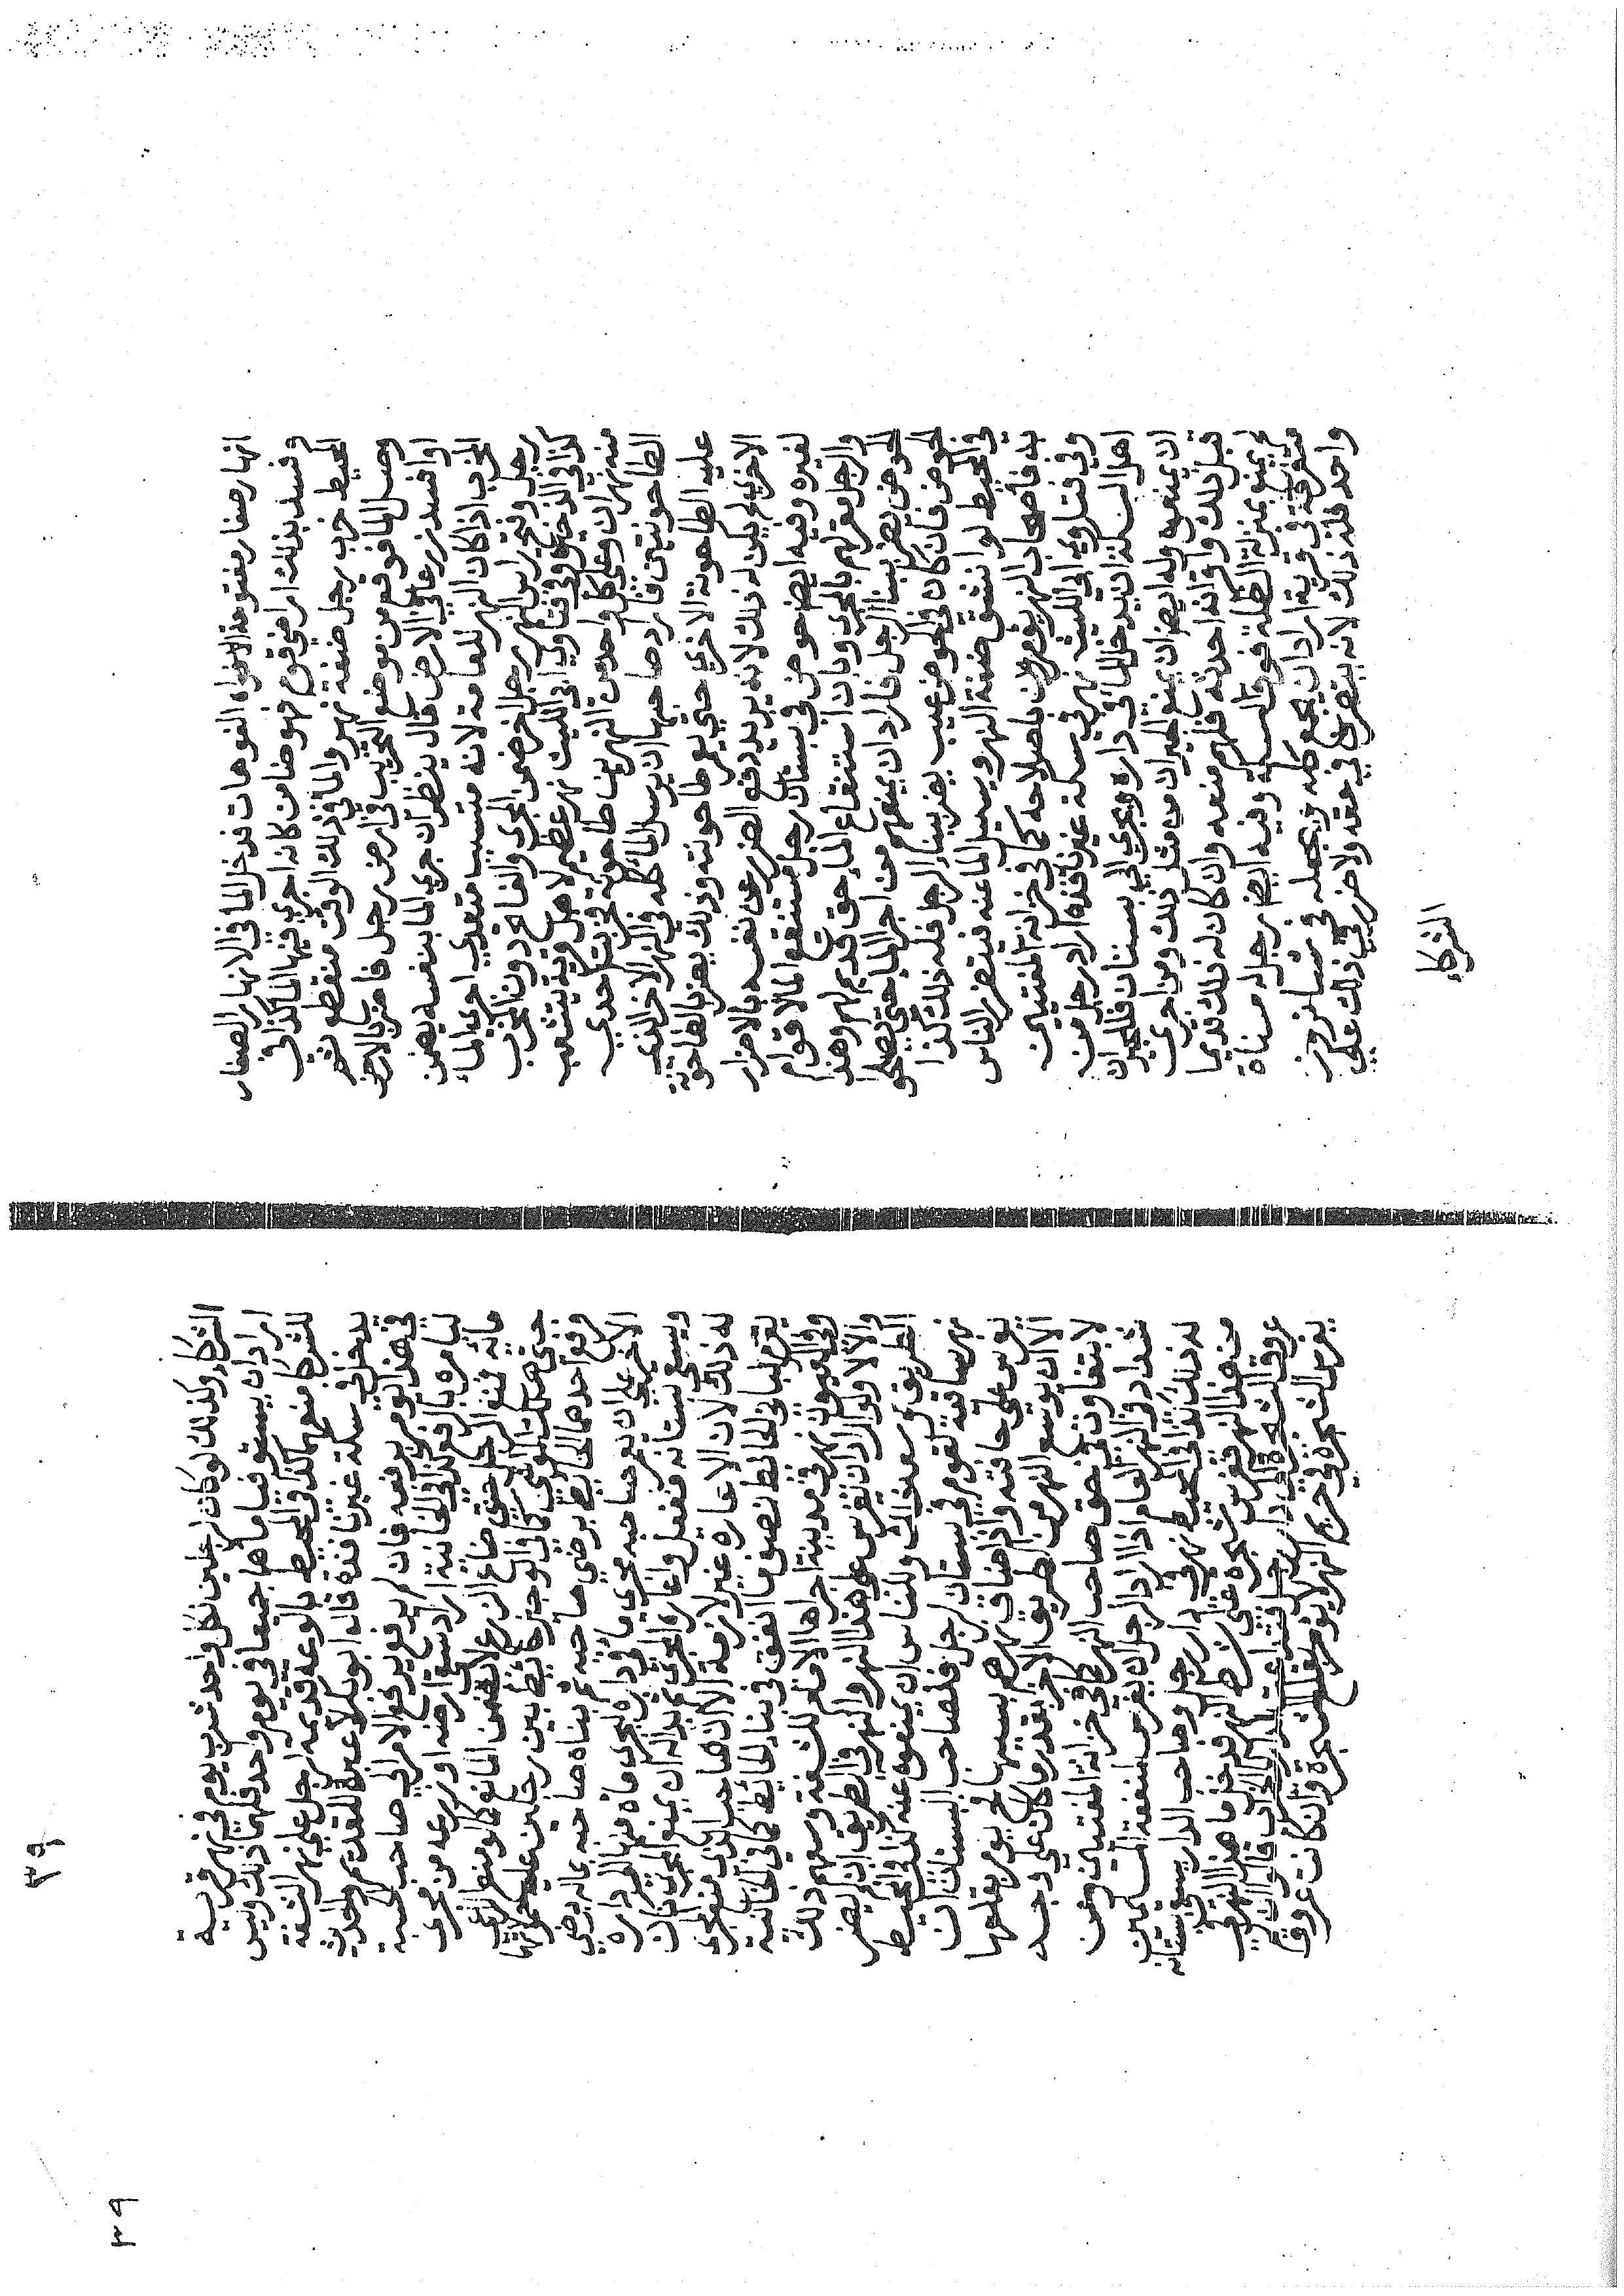 انهار صغار مفتوحة الافواه الفوهات فدخل الما في الانهار الصغار
وفسد بذلك اراضي قوم فهو ضامن كانه اجري فيها الما كذا في
المحيط خرب رجل ضفة نهر والما في ذلك الوقت منقطع ثم
وصل الما فوقع من موضع التخريب في ارض رجل فاضر بالارض
او افسد زرعا في الارض قال ينظر ان جري الما بنفسه يضمن
المخرب اذا كان النهر للعامة لانه متسبب متعدي اجري الماء
رجل وفتح راس النهر رجل اخر ضمن المجري والفاتح دون المخرب
كذا في الذخيرة وفي فتاوي ابي الليث نهر عظيم لاهل قرية يتشعب
منه نهران وعلي كل واحد من النهرين طاحونة فخربت احدي
الطاحونتين فاراد صاحبها ان يرسل الما كله في النهر الاخر الذي
عليه الطاحونة الاخري حتي يعمر طاحونته وذلك يضر بالطاحونة
الاخري لم يكن له ذلك لانه يريد دفع الضرر عن نفسه بالاضرار
لغيره وفيه ايضا حوض في بستان رجل مستنقع الما لاقوام
والرجل مقر لهم بالمجري وبان استنقاع الماء حق قديم لهم وهذا
الحوض يضر ببناء الرجل فاراد ان يمنعهم من اجرا الما حتي يصلحوا
الحوض فان كان في الحوض عيب يضر ببناء الرجل فله ذلك كذا
في المحيط لو انشق ضفة النهر ويسيل الما عنه فيتضرر الناس
به فاصحاب النهر يؤمرون باصلاحه كما في خزانة المفتيين
وفي فتاوي ابي الليث نهر في سكة غير نافذة اراد رجل من
اهل السكة ان يدخل الماء في داره ويجري الي بستانه فللجيران
ان يمنعوه وله ايضا ان يمنع الجيران من مثل ذلك ومن اجري
قبل ذلك واقر انه احدثه فلهم منعه وان كان له ذلك قديما
لم يمنع بمنزلة الظلة فوق السكة وفيه ايضا رجل له مسناة
متفرقة في قرية اراد ان يجمع كله ويجعله في شتا نوروز
واحد فله ذلك لانه يتصرف في حقه ولا ضرر في ذلك علي
الشركاء
الشركاء وكذلك لو كان لرجلين لكل واحد شرب يوم في نهر قرية
ارادا ان يسقيا فيما ماهما جميعا في يوم واحد فلهما ذلك وليس
للشركا منعهما كذا في المحيط بالوعة قديمة لرجل علي نهر الشفة
يدخل في سكة غير نافذة قال ابو بكر لا عبرة للقديم والحديث
في هذا يومر برفعه فان لم يرفع يرفع الامر الي صاحب الحسبة
ليامره بالرفع كذا في الخانية اراد سقي ارضه او زرعه من مجري
مائه فمنع الرجل حتي ضاع الزرع لا يضمن المانع كما لو منع الراعي
حتي هلكت المواشي كما في الوجيز حائط بين رجلين عليه حمولتهما
رفع احدهما الحائط برضي صاحبه ثم بناه صاحبه بماله برضي
الاخر علي ان يعير صاحبه مجري ماء في داره ليجري ماءه فيها الي داره
ويسقي بستانه ففعل واعاره المجري ثم بدا له ان يمنع المجري كان
له ذلك لان الاعارة غير لازمة الا ان صاحب الدار الذي منع المجري
يغرم لباني الحائط نصف ما انفق في بناء الحائط كما في الخانية
وفي العيون نهر في مدينة اجراها الامام للشفة وسعهم ذلك
والا لا ولو اراد ان يغرس علي هذا النهر والنهر في الطريق ان لم يضر
الطريق وسعه ذلك وللناس ان يمنعوه عنه كذا في المحيط
نهر ساقية لقوم في بستان لرجل فلصاحب البستان ان
يغرس علي حافتيه واذا ضاق نهرهم بسببها يومر بقلعها
الا ان يوسع النهر من الطريق الاخر بقدر ما كان علي وجه
لا يتفاوت في حق صاحب النهر كما في خزانة المفتيين وعن
شداد في النهر العام اذا اراد الرجل ان يغرس لمنفعة المسلمين
له ذلك كذا في المحيط نهر في دار رجل وصاحب الدار يسقي بستانه
من هذا النهر فغرس شجرة علي شط النهر فدخل ما هذا النهر في
عروق الشجرة الي دار رجل فتداعت الدار الي الخراب قالوا ان
يغرس الشجرة في حريم النهر لا يؤمر بقلع الشجرة وان كانت عروق
٣٩
٣٩